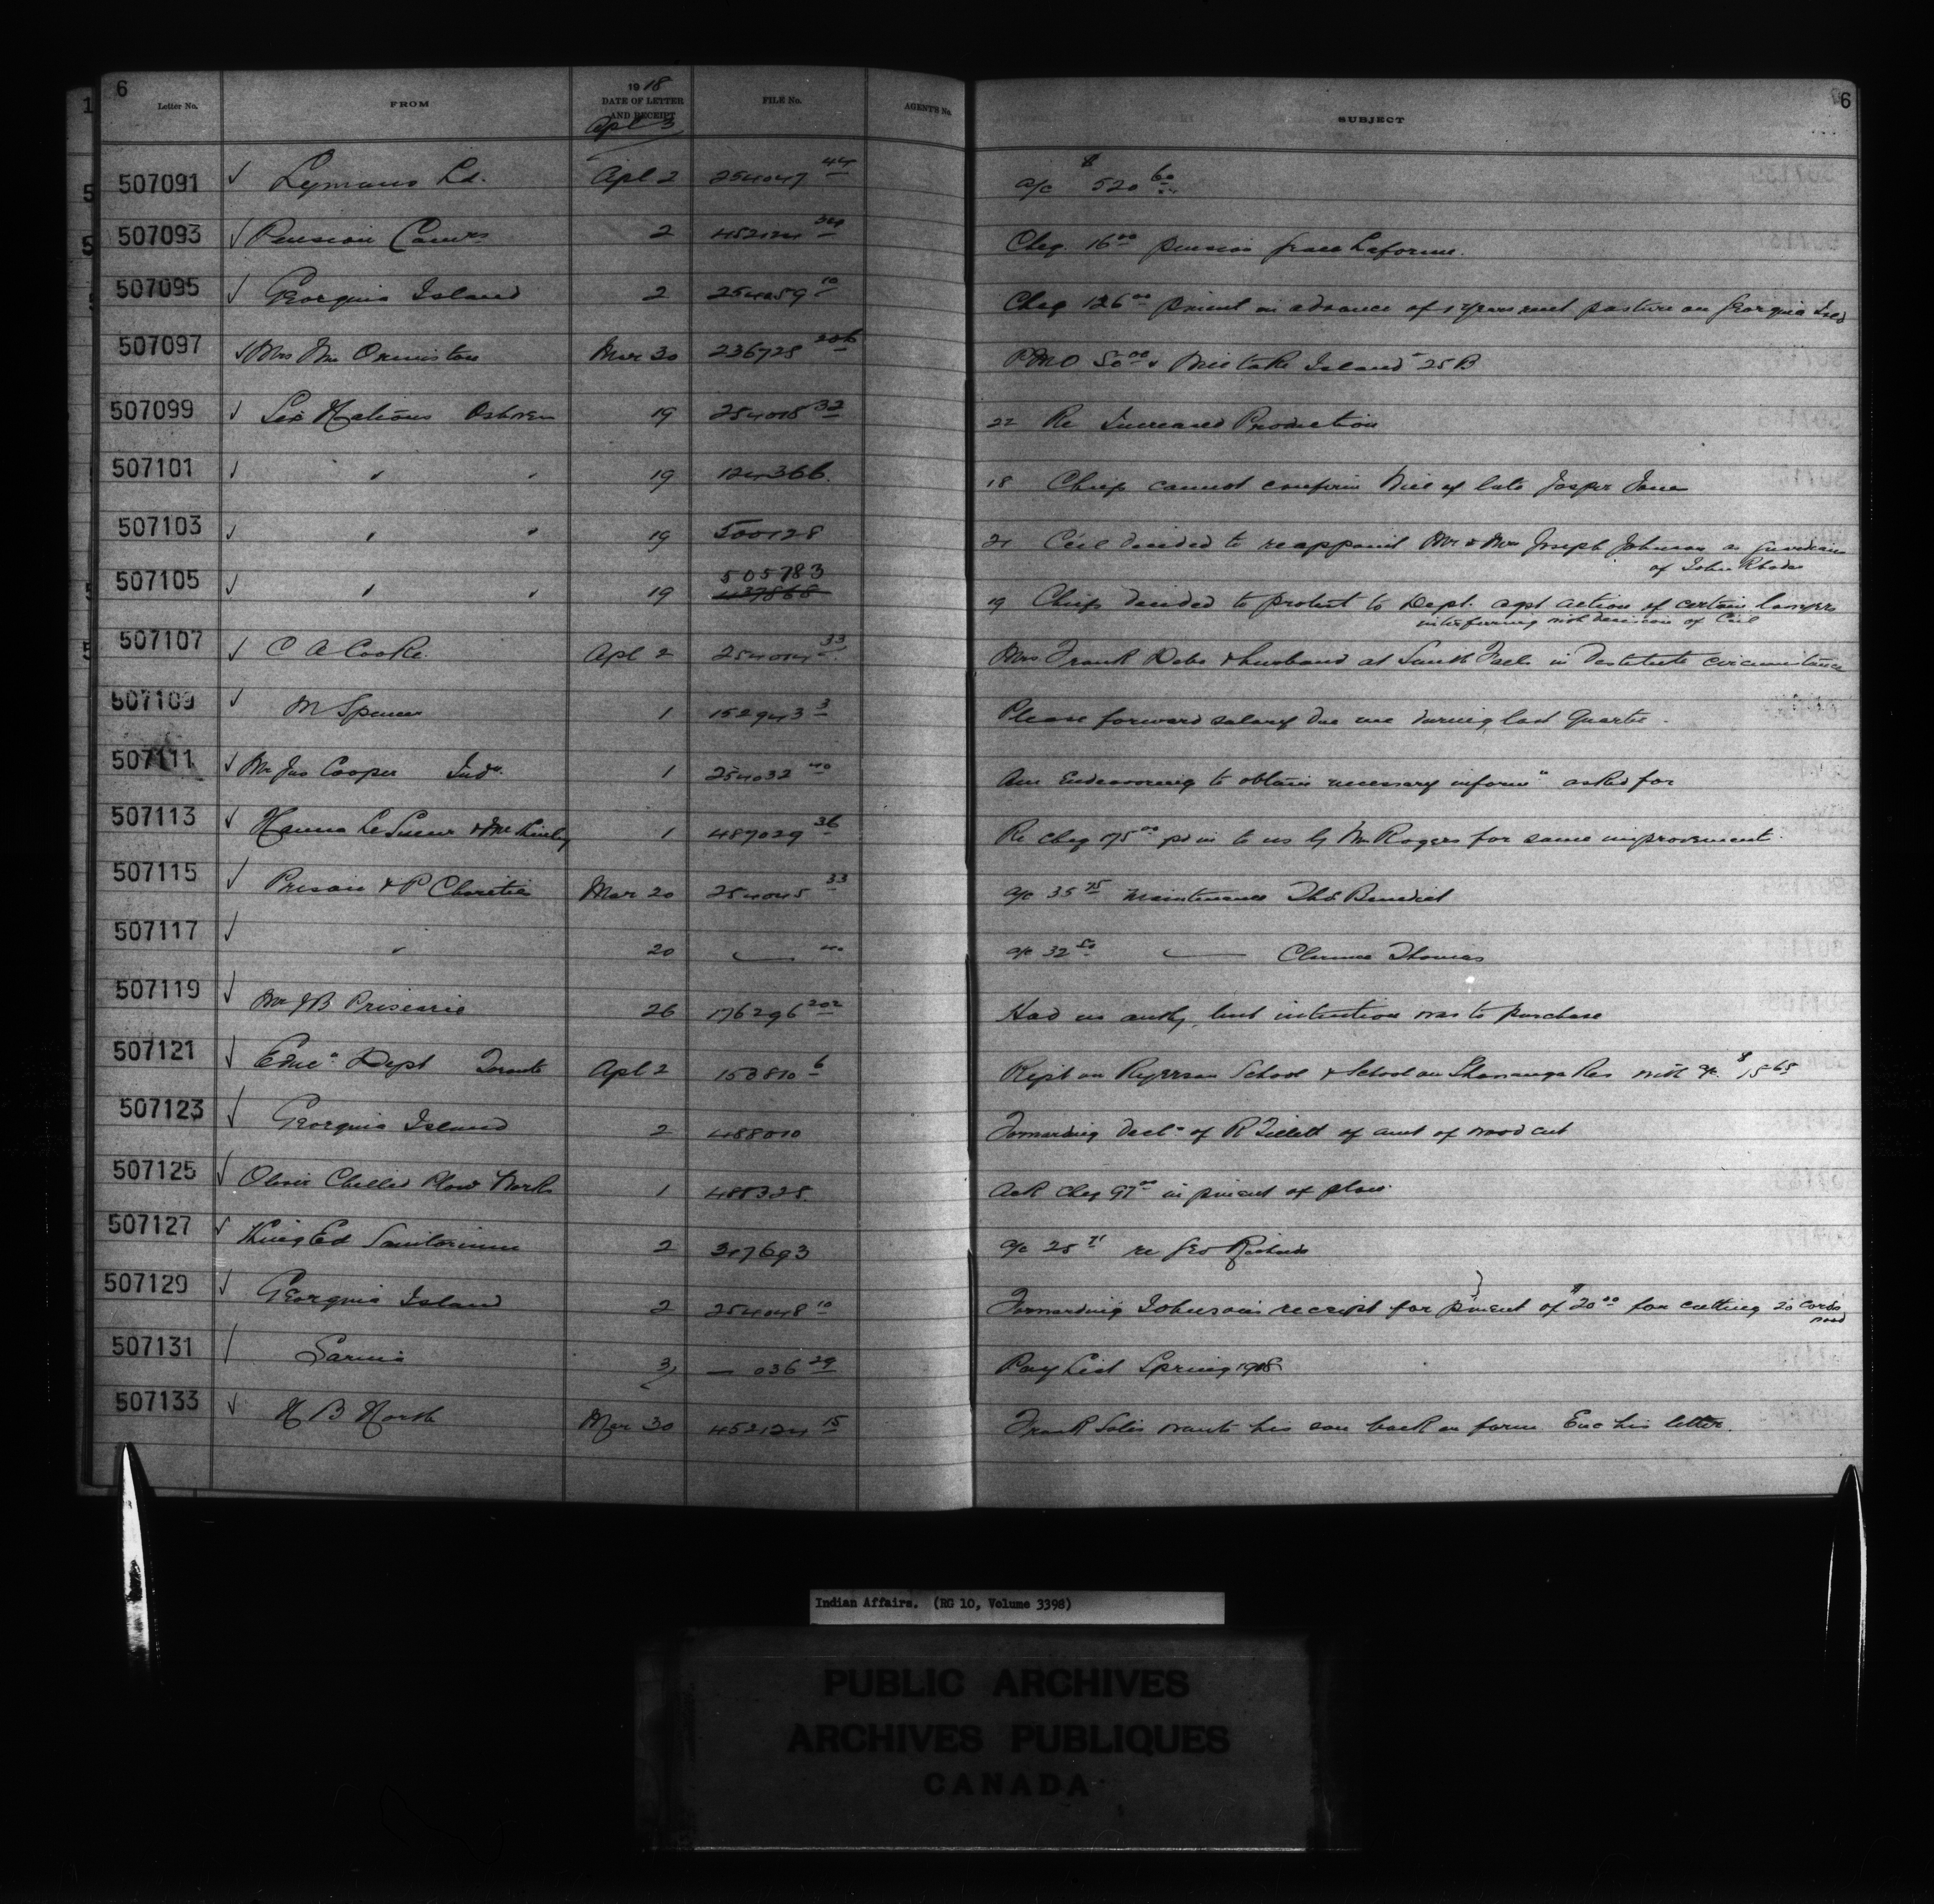 6
Letter No. FROM 1918 DATE OF LETTER AND RECEIPT FILE No. AGENTS No. SUBJECT 6
Apl 3
507091 ✓ Lymans Ld. Apl 2 254047 44 a/c $520 60
507093 ✓ Pension Comrs 2 452124 Cheq. 16 00 pension Laforme.
507095 ✓ Georgina Island 2 254059 10 Cheq 126 00 pment in advance of 1 years rent pasture on Georgina Isld
507097 ✓ Mrs Wm Ormiston Mar 30 236728 206 PMO 50 00 Mistake Island 25B
507099 ✓ Six Nations 19 254018 32 22 Re Increased Production
507101 ✓ " " 19 124366. 18 Chiefs cannot confirm Will of late Jasper Jones
507103 ✓ " " 19 500128 21 Ccil decided to reappoint Mr & Mrs Joseph Johnson as Guardians
of John Rhodes
507105 ✓ " " 19 505783
19 Chiefs decided to protest to Dept. agst action of certain lawyers
interferring with decision of Ccil
507107 ✓ C A Cooke. Apl 2 254014 33 Mrs Frank & husband at in destitute circumstances
507109 ✓ M Spencer 1 152943 3 Please forward salary due me during last Quarter.
507111 ✓ Mr Jas Cooper 1 254032 40 Am Endeavoring to obtain necessary informn asked for
507113 ✓ Hanna LeSueur & McKinley 1 487029 36 Re cheq 175 00 pd in to us by Mr Rogers for some improvement.
507115 ✓ Prison & P Charities Mar 20 254045 33 a/c 35 75 Maintenance Thos Benedict
507117 ✓ " 20 — 40 a/c 32 50 — Clarence Thomas
507119 ✓ Mr J B 26 176296 202 Had no authy, but intention was to purchase
507121 ✓ Educn Dept Toronto Apl 2 153810 6 Rept on Ryerson School & School on Shawanaga Res with a/c $15 65
507123 ✓ Georgina Island 2 488010 Forwarding decln of R of amt of wood cut
507125 ✓ Oliver Chilled Plow Works 1 488328 Ack cheq 97 00 in pment of plow.
507127 ✓ King Ed Sanitorium 2 317693 a/c 25 71 re Geo
507129 ✓ Georgina Island 2 254048 10 Forwarding Johnson's receipt for pment of $20 00 for cutting 20 cords
wood
507131 Sarnia 3 — 036 29 Pay List Spring 1918
507133 ✓ H B North Mar 30 452124 15 Frank wants his son back on farm. Enc his letter.
Indian Affairs. (RG 10, Volume 3398)
PUBLIC ARCHIVES
ARCHIVES PUBLIQUES
CANADA